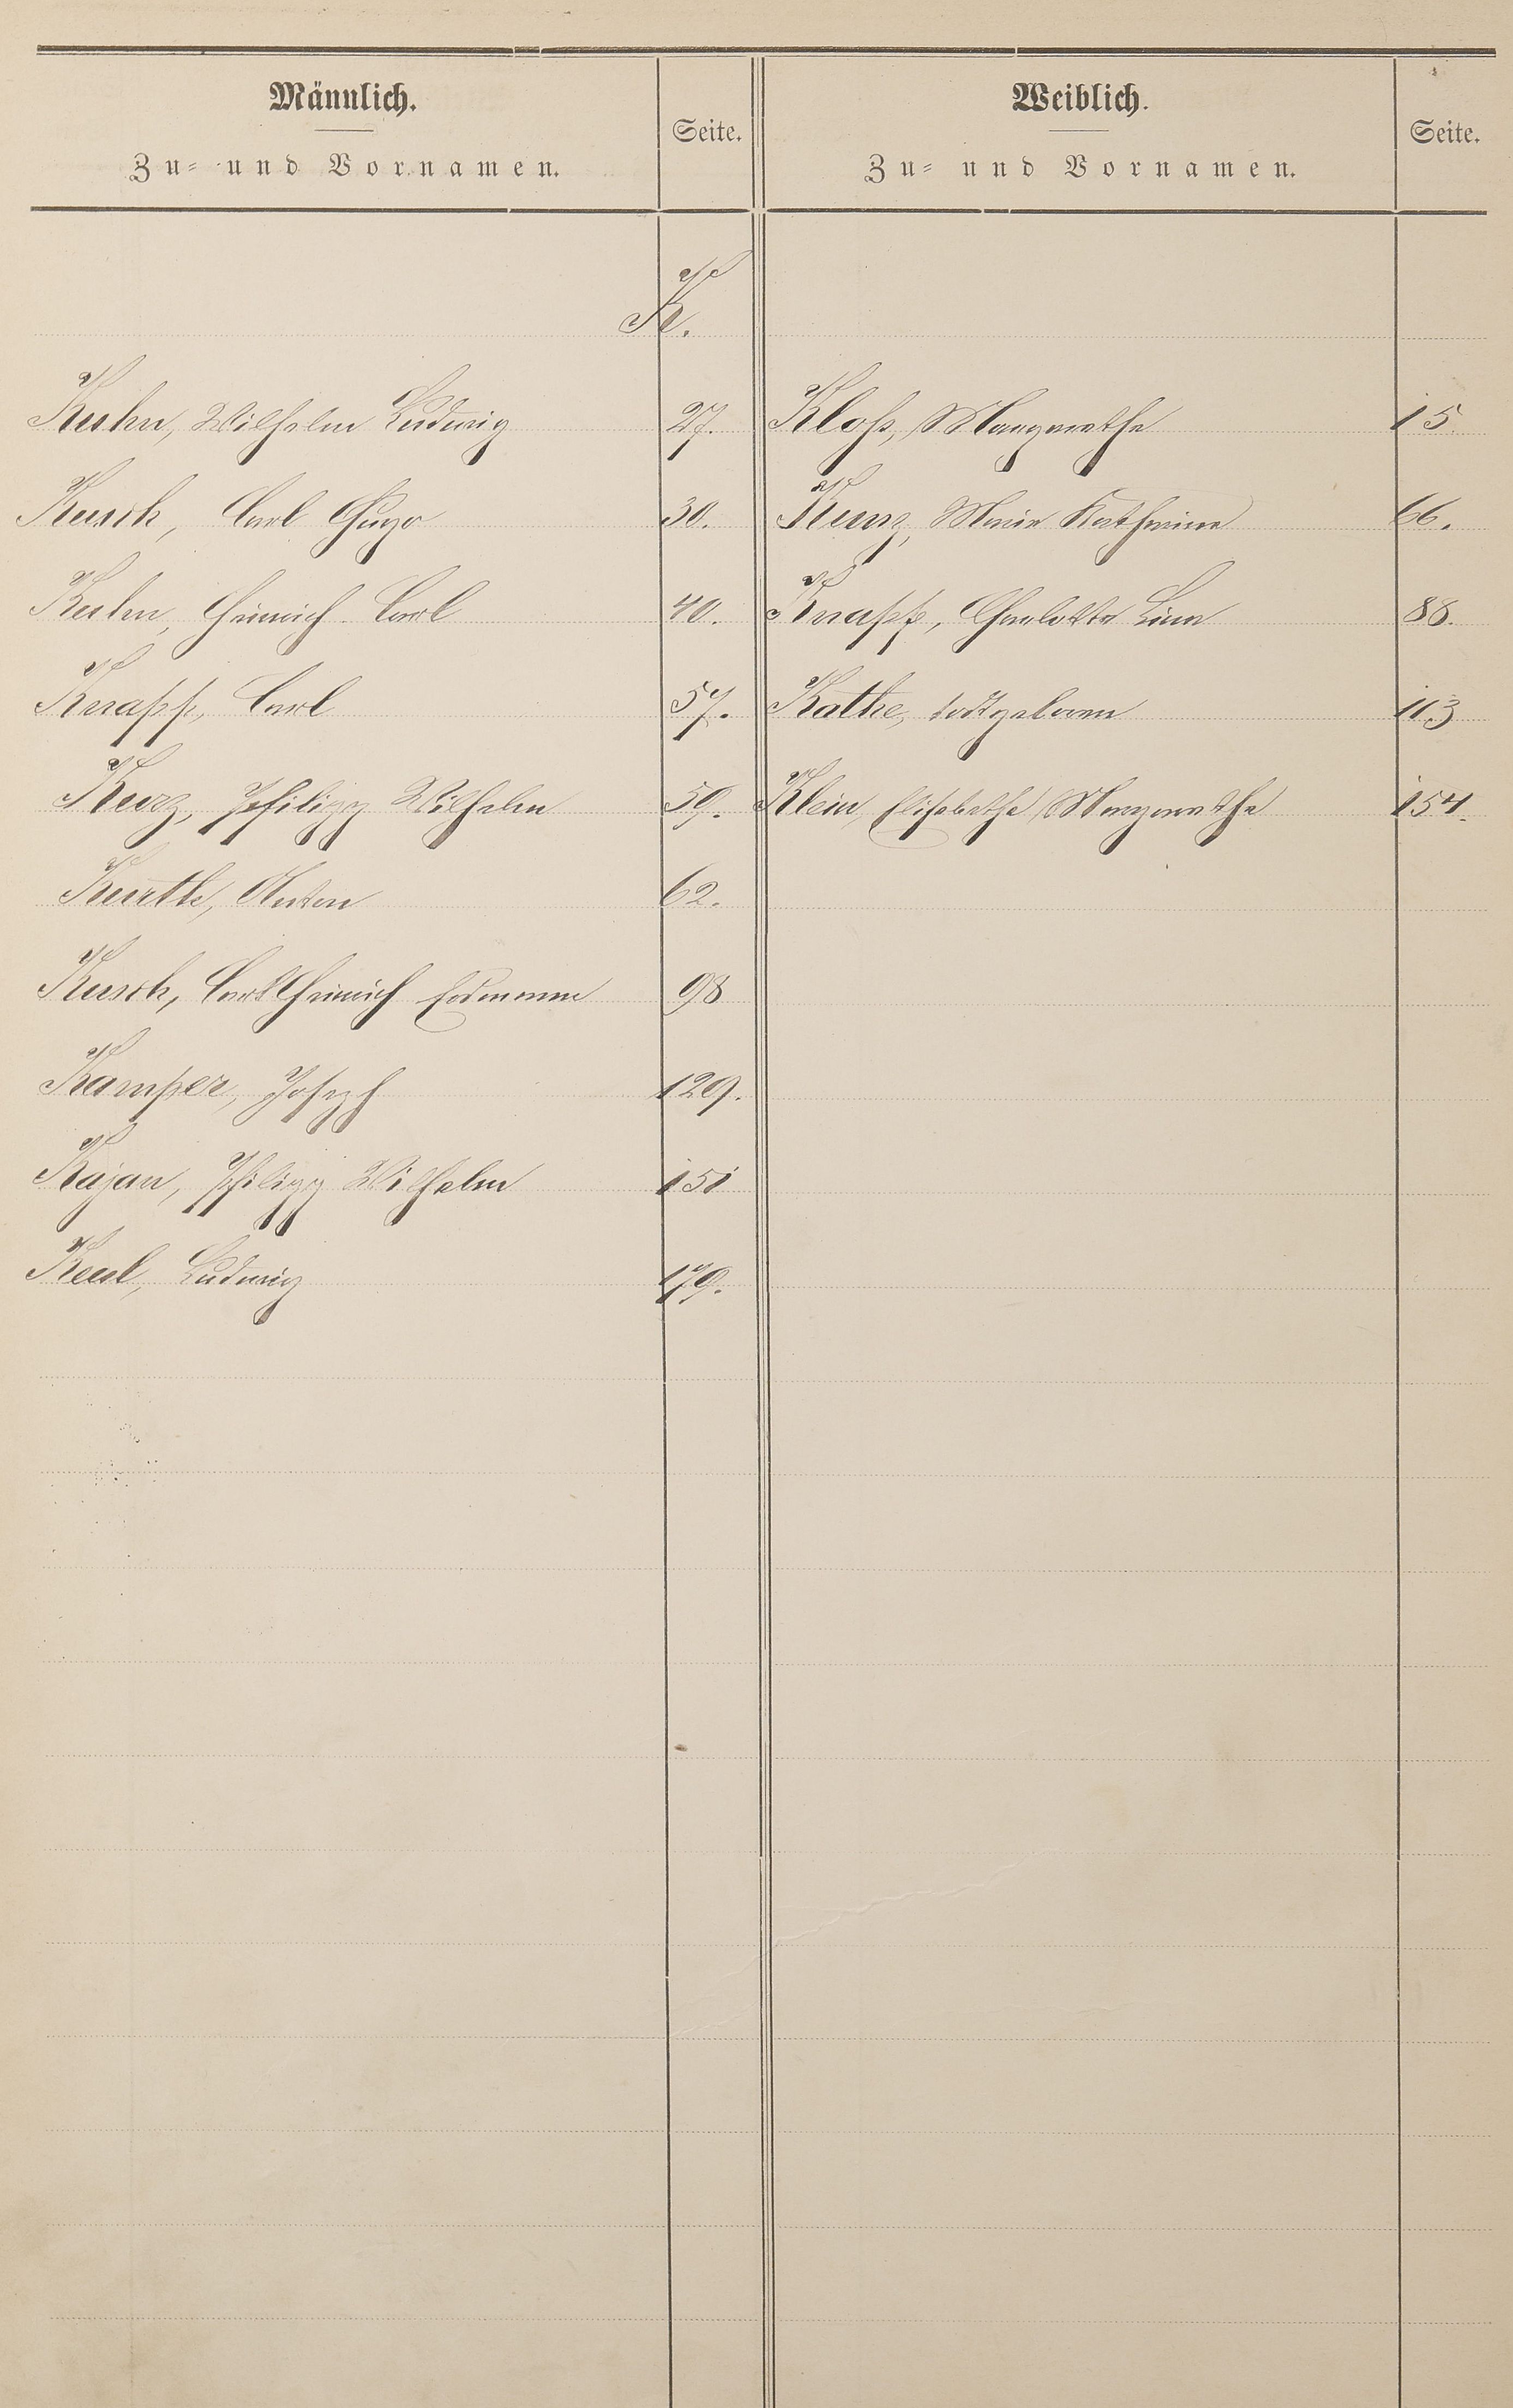 Männlich.
Zu- und Vornamen.
Seite.
Weiblich.
Zu- und Vornamen.
Seite.
K.
Kuhn, Wilhelm Ludwig 27. Kloß, Margarethe 15.
Kusch, Carl Hugo 30. Kunz, Marie Katharine 66.
Kuhn, Heinrich Carl 40. Knapp, Charlotte Lina 88.
Knapp, Carl 57. Kathe, todtgeboren 113
Kurz, Philipp Wilhelm 59. Klein, Elisabetha Margarethe 154.
Kurth, Anton 62.
Kusch, Carl Heinrich 98
Kamper, Joseph 129.
Kajan, Philipp Wilhelm 151
Keul, Ludwig 179.